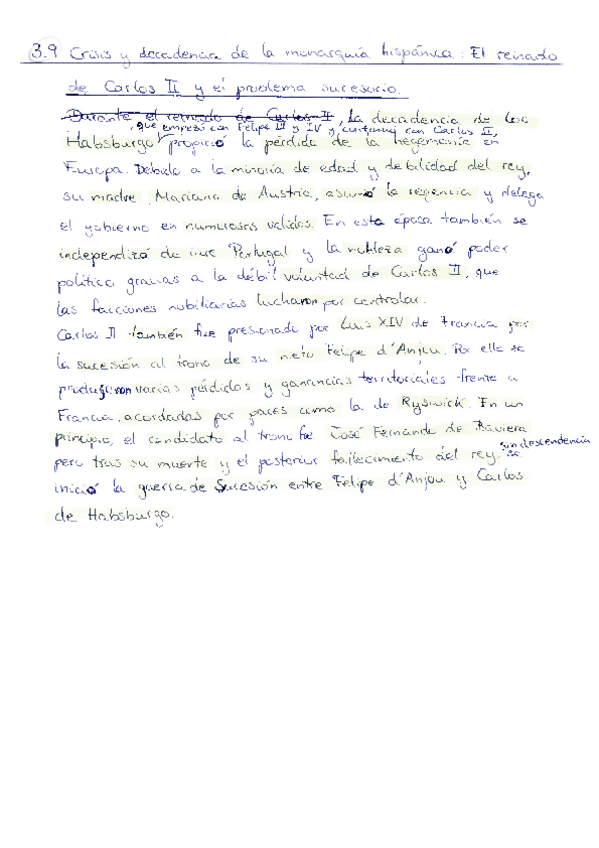 3.9 Crisis y decadencia de la monarquía hispánica: El reinado
de Carlos II y el problema sucesorio.
Durante el reinado de Carlos II, La decadencia de los
, que empezó con Felipe III y IV y continuó con Carlos II,
Habsburgo propició la pérdida de la hegemonía en
Europa. Debido a la minoría de edad y debilidad del rey,
su madre, Mariana de Austria, asumió la regencia y delega
el gobierno en numerosos validos. En esta época también se
independizó de nue Portugal y la nobleza ganó poder
político gracias a la débil voluntad de Carlos II, que
las facciones nobiliarias lucharon por controlar.
Carlos II también fue presionado por Luis XIV de Francia por
la sucesión al trono de su nieto Felipe d'Anjou. Por ello se
produjeron varias pérdidas y ganancias territoriales frente a
Francia, acordadas por paces como la de Ryswick. En un
principio, el candidato al trono fue José Fernando de Baviera
pero tras su muerte y el posterior fallecimiento del rey sin descendencia se
inició la guerra de Sucesión entre Felipe d'Anjou y Carlos
de Habsburgo.